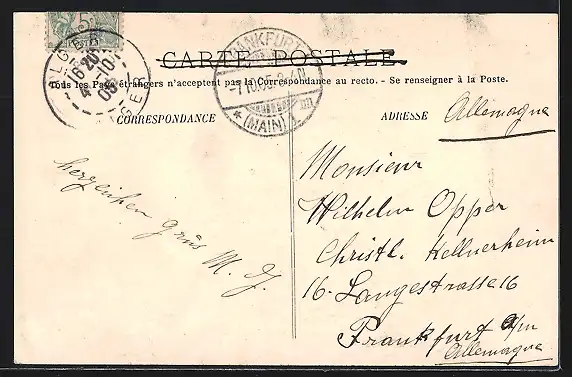 CARTE POSTALE
Tous les Pays étrangers n'acceptent pas la Correspondance au recto. - Se renseigner à la Poste.
CORRESPONDANCE
ADRESSE Allemagne
ALGER
16 20
4 -10
05
FRANKFURT
7.10.05.
* (MAIN) 1.
herzlichen Grüs
M. J.
Monsieur
Wilhelm Opper
Christl. Kellnerheim
16. Langestrasse 16
Frankfurt a/m
Allemagne